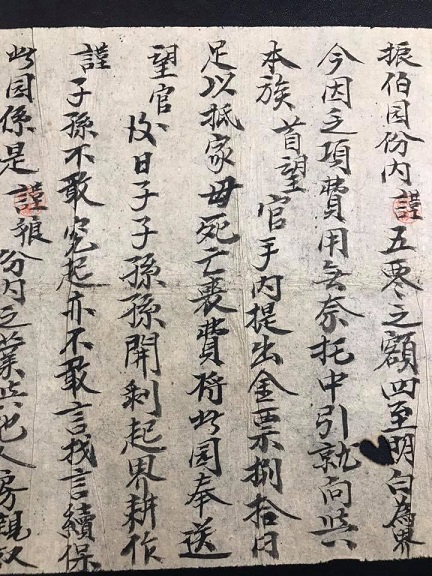 振伯园份内謹五零之额四至明白為界
今因乏項費用無奈托中引就向与
本族首望官手内提出金票捌拾円
足以抵家母死亡喪費将此园奉送
望官後日子子孫孫開剝起界耕作
謹子孫不敢起亦不敢言找言續保
此园係是謹份内之業与他人房親